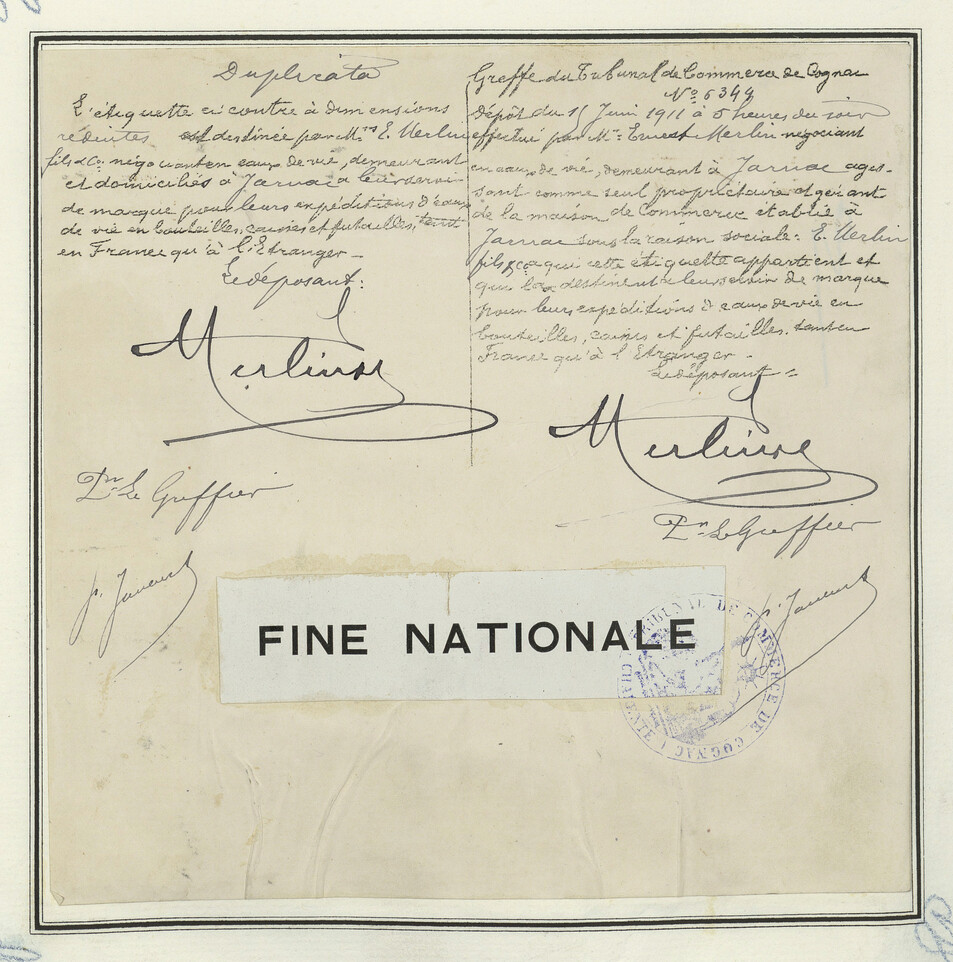 Duplicata
L'étiquette ci contre à dimensions
réduites est destinée par Mrs E. Merlin
fils & Co. négociants en eaux de vie, demeurant
et domiciliés à Jarnac à leur servir
de marque pour leurs expéditions d'eaux
de vie en bouteilles, caisses et futailles, tant
en France qu'à l'Etranger -
Le déposant:
Merlin
Pr Le Greffier
Greffe du Tribunal de Commerce de Cognac
No 6344
Dépôt du 15 Juin 1911 à 5 heures du soir
effectué par Mr Ernest Merlin négociant
en eaux de vie, demeurant à Jarnac agis-
sant comme seul propriétaire et gérant
de la maison de Commerce établie à
Jarnac sous la raison sociale: E. Merlin
fils & Co qui cette étiquette appartient et
qui la destinent à leur servir de marque
pour leurs expéditions d'eaux de vie en
bouteilles, caisses et futailles tant en
France qu'à l'Etranger -
Le déposant =
Merlin
Pr Le Greffier
FINE NATIONALE
TRIBUNAL DE COMMERCE DE COGNAC (CHARENTE)